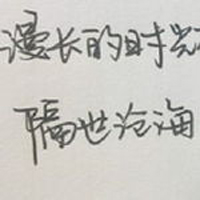 漫长的时光
隔世沧海